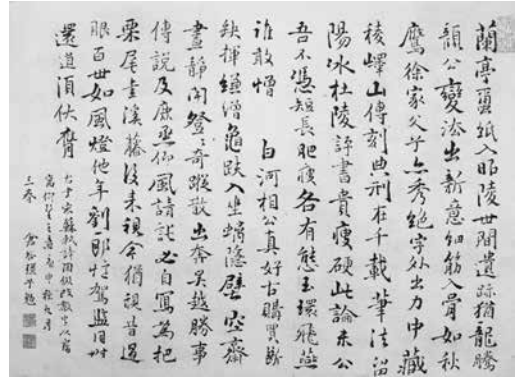 蘭亭繭紙入昭陵世間遺跡猶龍騰
顏公變法出新意細筋入骨如秋
鷹徐家父子亦秀絕字外出力中藏
稜嶧山傳刻典刑在千載筆法留
陽冰杜陵評書貴瘦硬此論未公
吾不憑短長肥瘦各有態玉環飛燕
誰敢憎 白河相公真好古購買斷
缺揮縑繒龜趺入坐螭隱壁空齋
晝靜聞登登奇蹤散出奔吳越勝事
傳說及庶烝仰風請詩必自寫為把
栗尾書溪藤後来視今猶視昔過
眼百世如風燈他年劉郎憶賀監同時
還道須伏膺